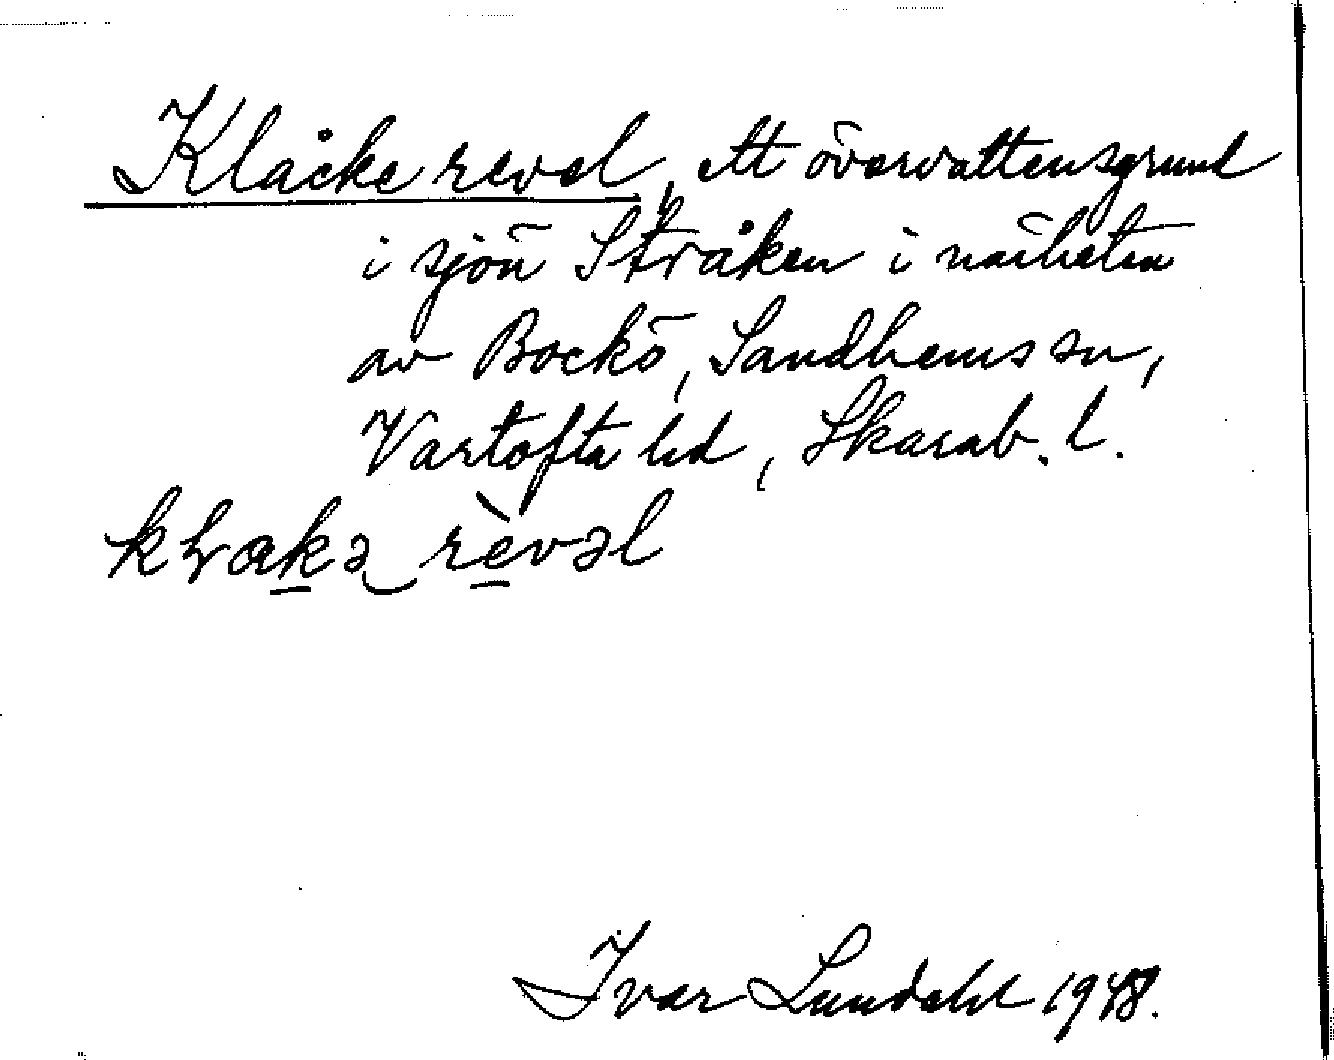 Klåcke revel, ett övervattensgrund
i sjön Stråken i närheten
av Bockö, Sandhems sn,
Vartofta hd, Skarab. l.
kƚɑkə rèvəl
Ivar Lundahl 1948.